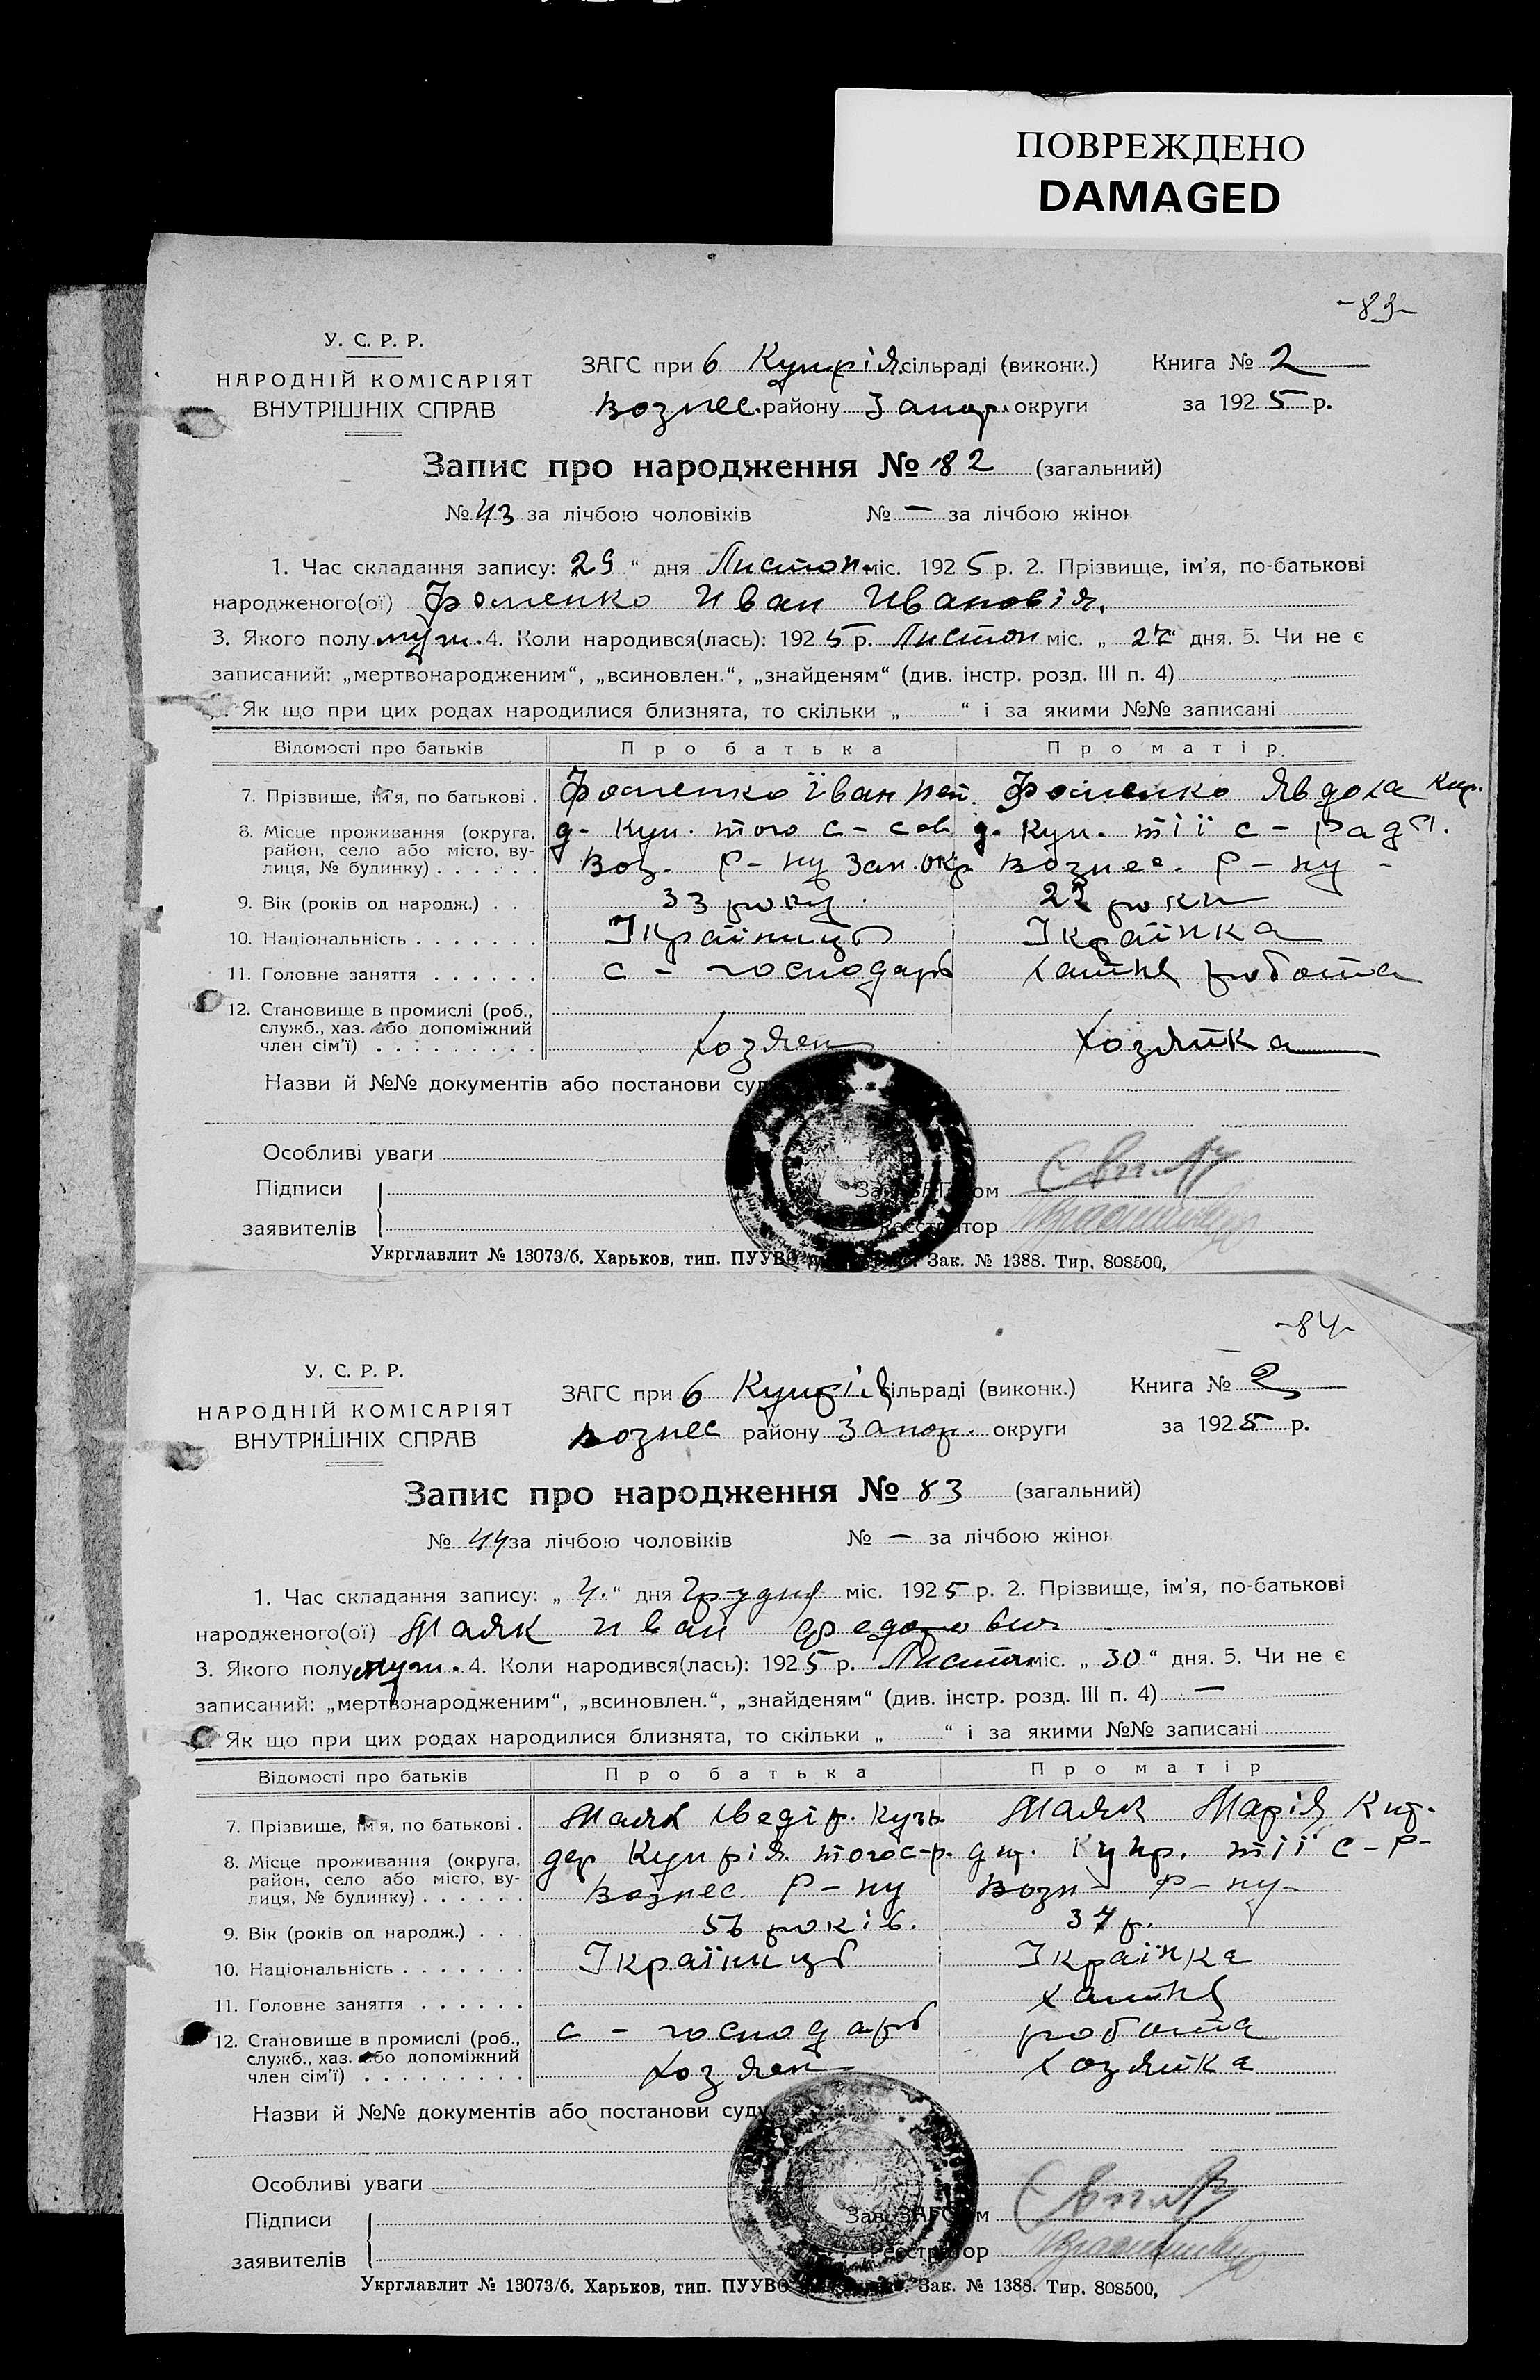 ПОВРЕЖДЕНО
DAMAGED
-83-
У. С. Р. Р.
НАРОДНІЙ КОМІСАРІЯТ
ВНУТРІШНІХ СПРАВ
ЗАГС при б Купрія. сільраді (виконк.)
Вознес. району Запор. округи
Книга № 2
за 1925 р.
Запис про народження № 82 (загальний)
№ 43 за лічбою чоловіків № — за лічбою жінок
1. Час складання запису: 29 “ дня Листоп. міс. 1925 р. 2. Прізвище, ім’я, по-батькові
народженого(ої) Фоменко Иван Иванов
3. Якого полу муж. 4. Коли народився(лась): 1925 р. Листоп міс. „ 27 “ дня. 5. Чи не є
записаний: „мертвонародженим“, „всиновлен.“, „знайденям“ (див. інстр. розд. III п. 4)
Як що при цих родах народилися близнята, то скільки „ “ і за якими №№ записані
Відомості про батьків Про батька Про матір
7. Прізвище, ім’я, по батькові . Фоменко Їван Фоменко Явдоха Кир.
8. Місце проживання (округа, район, село або місто, вулиця, № будинку) д. Куп. того с-сов д. Куп. тії с-рад
Воз. р-ну Зап. окр. Вознес. р-ну -
9. Вік (років од народж.) . . 33 року 22 роки
10. Національність Ікраїниць Ікраїнка
11. Головне заняття с-господарь хатня робота
12. Становище в промислі (роб., служб., хаз. або допоміжний член сім’ї) хозяен хозяйка
Назви й №№ документів або постанови суд
Особливі уваги
Підписи
заявителів
Зав. ЗАГСом
Реєстратор
Укрглавлит № 13073/б. Харьков, тип. ПУУВО Зак. № 1388. Тир. 808500,
-84-
У. С. Р. Р.
НАРОДНІЙ КОМІСАРІЯТ
ВНУТРІШНІХ СПРАВ
ЗАГС при б Купрія сільраді (виконк.)
Вознес району Запор. округи
Книга № 2
за 1925 р.
Запис про народження № 83 (загальний)
№ 44 за лічбою чоловіків № — за лічбою жінок
1. Час складання запису: „ 4. “ дня Грудня міс. 1925 р. 2. Прізвище, ім’я, по-батькові
народженого(ої) Маяк Иван Федорович
3. Якого полу муж. 4. Коли народився(лась): 1925 р. Листоп міс. „ 30 “ дня. 5. Чи не є
записаний: „мертвонародженим“, „всиновлен.“, „знайденям“ (див. інстр. розд. III п. 4) —
Як що при цих родах народилися близнята, то скільки „ “ і за якими №№ записані
Відомості про батьків Про батька Про матір
7. Прізвище, ім’я, по батькові . Маяк Хведір Кузь. Маяк Марія Кир.
8. Місце проживання (округа, район, село або місто, вулиця, № будинку) дер Купрія. того с-р. Купр. тії с-р-
Вознес. р-ну Возн- р-ну-
9. Вік (років од народж.) . . 56 років. 37 р.
10. Національність Ікраїниць Ікраїнка
11. Головне заняття хатня
12. Становище в промислі (роб., служб., хаз. або допоміжний член сім’ї) с-господарь робота
хозяен хозяйка
Назви й №№ документів або постанови суду
Особливі уваги
Підписи
заявителів
Зав. ЗАГСом
Реєстратор
Укрглавлит № 13073/б. Харьков, тип. ПУУВО Зак. № 1388. Тир. 808500,